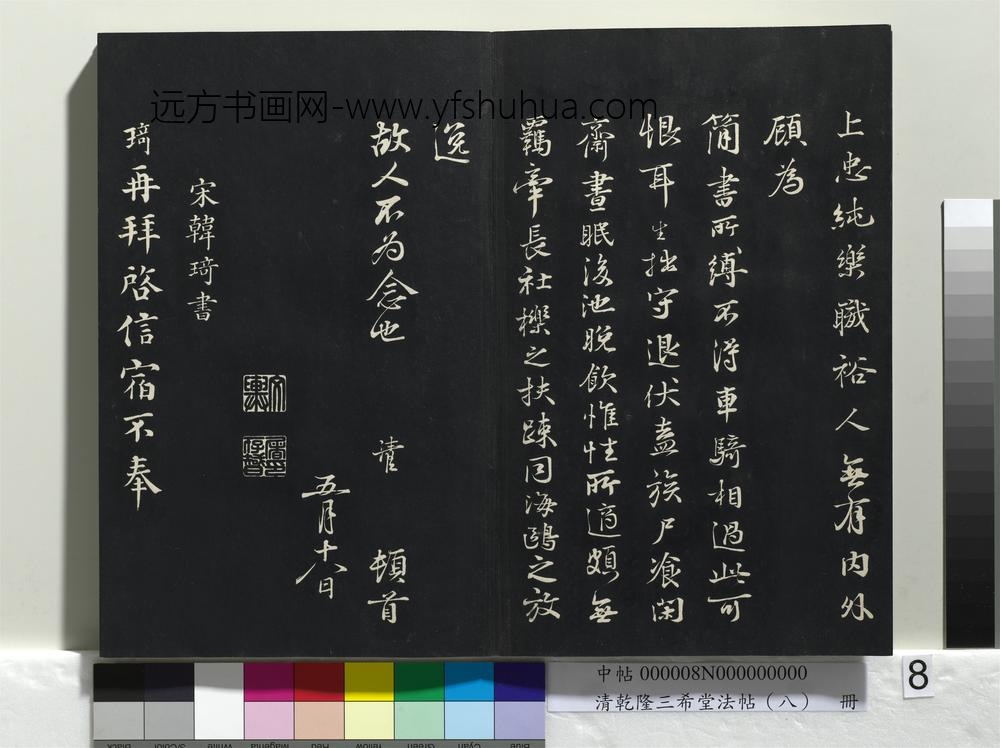 远方书画网-www.yfshuhua.com
上忠純樂職裕人無有内外
顧為
簡書所縛不得車騎相過此可
恨耳生拙守退伏盍族尸飡閑
齋晝眠後池晚飲惟性所適頗無
羈牽長社櫟之扶踈同海鷗之放
逸
故人不為念也 清 頓首
五月十八日
宋韓琦書
琦再拜啓信宿不奉
中帖 000008N000000000
清乾隆三希堂法帖（八） 冊
8
Black
3/Color
White
Magenta
Red
Yellow
Green
Cyan
Blue